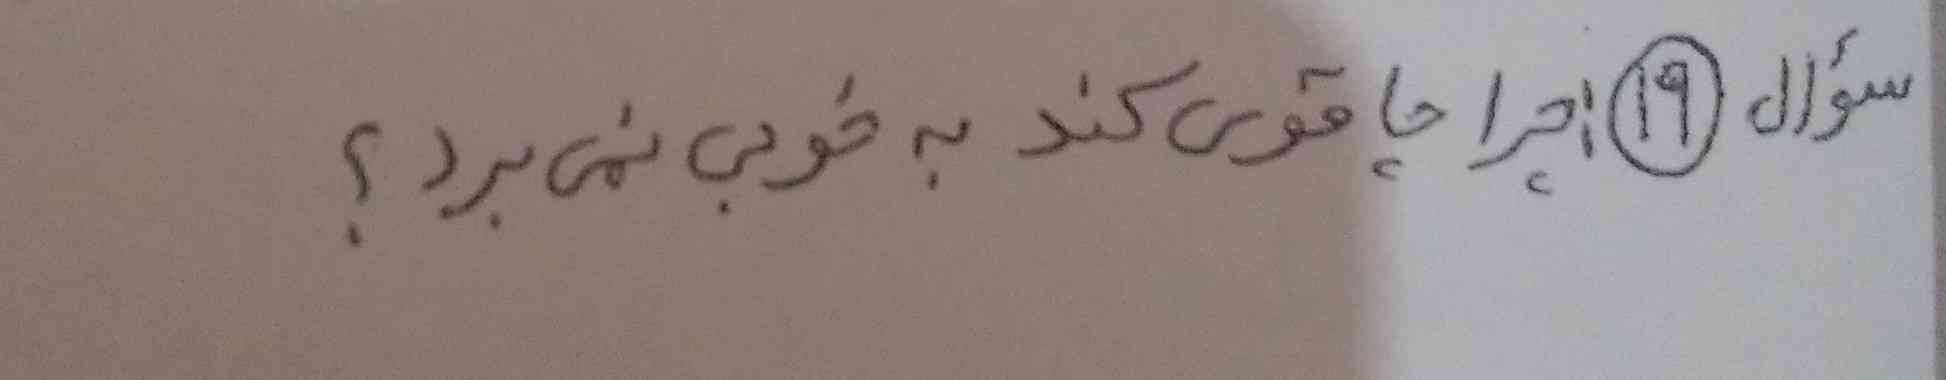 سؤال ۱۹: چرا چاقوی کند به خوبی نمی برد؟